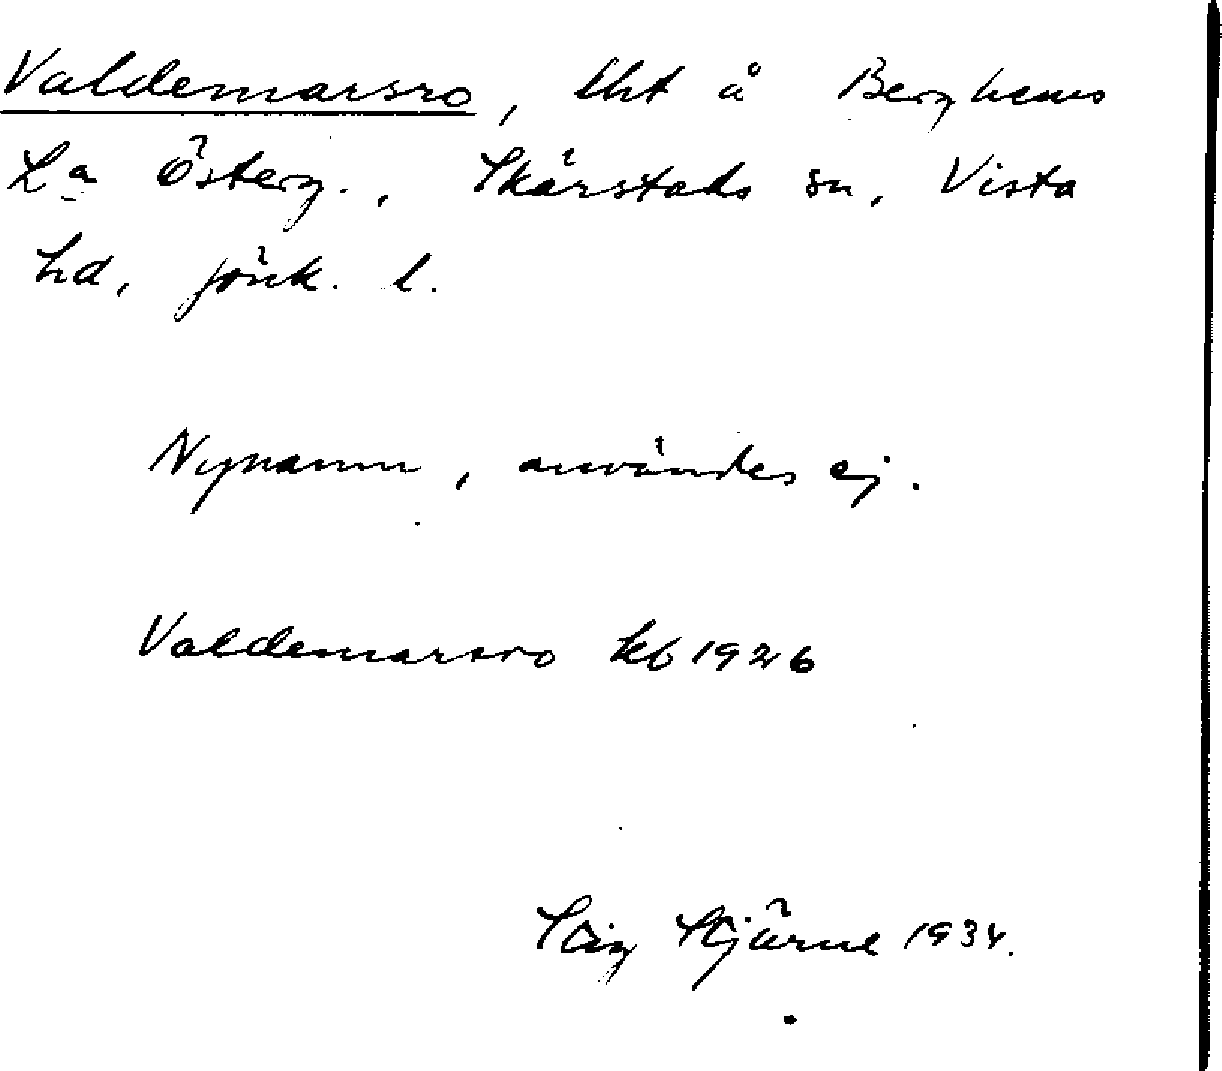 Valdemarsro, lht å Berghems
La Österg., Skärstads sn, Vista
hd, Jönk. l.
Nynamn, användes ej.
Valdemarsro kb 1926
Stig Stjärne 1934.